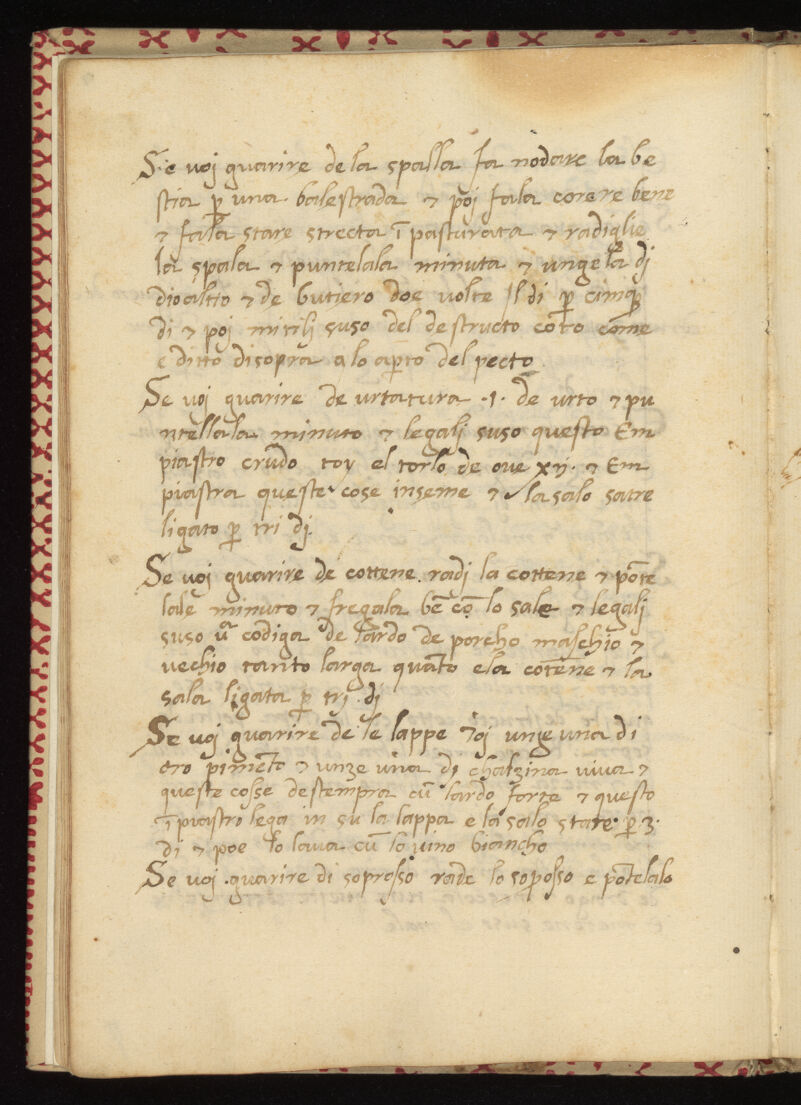 Se voj guarire de la spalla fa nodare la be
stia p̱ una balestrada ⁊ poj fala corere bene
⁊ fala stare strecta ī pasturata ⁊ radiglie
la spala ⁊ puntelala minuta ⁊ ungela dj
dioaltio ⁊ de butiero doe volte Il di p̱ cimq̱
di ⁊ poj mitilj suso del destructo coto come
e ditto disopra a lo apto del pecto
Se voj guarire de urtatura .1. de urto ⁊ pu
ntellala minuto ⁊ legalj suso questo Em
piastro crudo toy el torlo de ove xij. ⁊ Em
piastra queste cose inseme ⁊ la salo satre
ligato p̱ tri dj.
Se voj guarire de cottene radj la cottene ⁊ pōte
lale minuto ⁊ fregala bē cō lo sale ⁊ legalj
suso ūa codiga de lardo de porcho maschio ⁊
vechio tanto larga quāto ela cotene ⁊ la
sala ligata p̱ trj dj
Se voj guarire de le lappe toj unze una di
oro pimēto ⁊ unze una di chalzina viva ⁊
queste cosse destempra cū lardo forte ⁊ questo
īpiastro lega in su la lappa e la salo stare p̱ 3.
di ⁊ poe lo lava cū lo vino biancho
Se voj guarire di soprosso rade lo soposso e pōtelalo